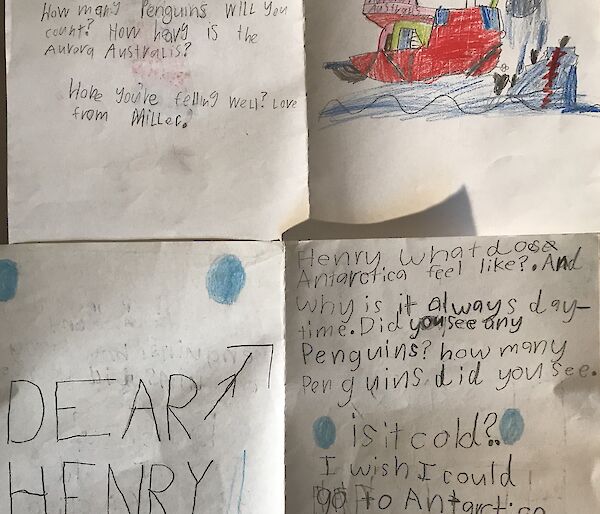 How many Penguins will you
count? How havy is the
Aurora Australis?
Hope you're felling well? Love
from Miller.
DEAR
HENRY
Henry what dose
Antarctica feel like?. And
why is it always day-
time. Did you see any
Penguins? how many
Penguins did you see.
is it cold?
I wish I could
go To Antarctica